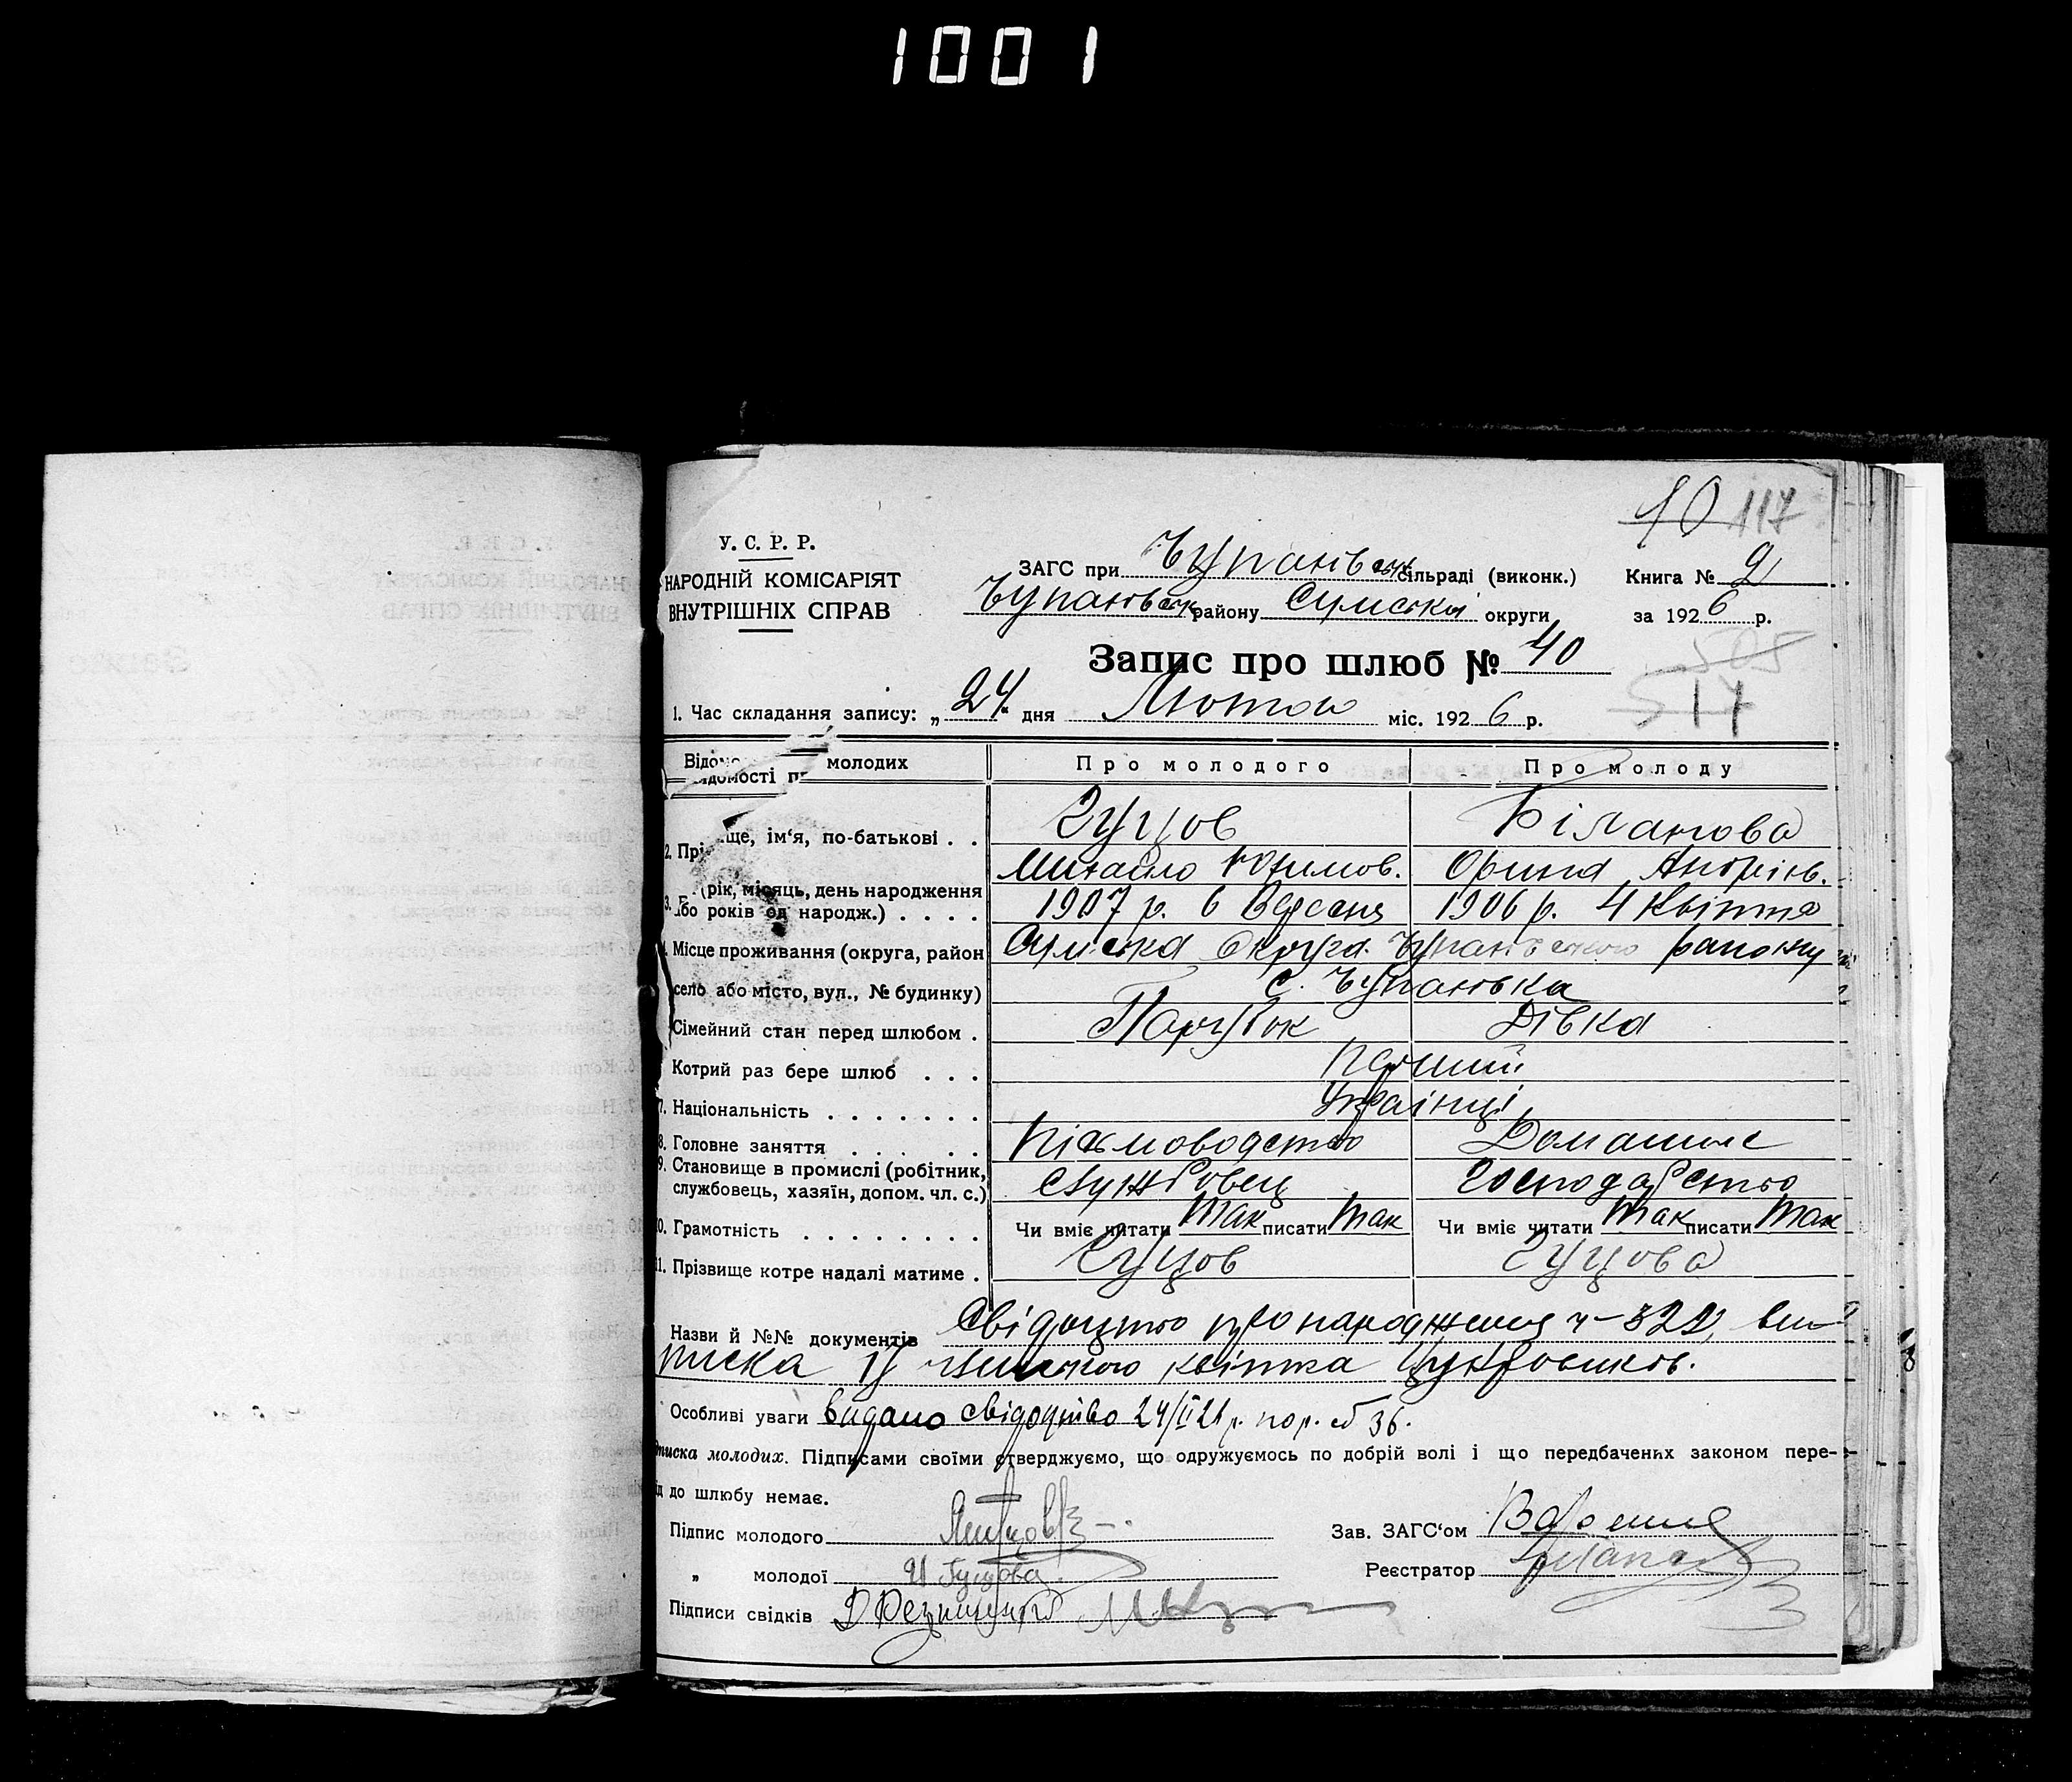 1001
10 117
У. С. Р. Р.
НАРОДНІЙ КОМІСАРІЯТ
ВНУТРІШНІХ СПРАВ
ЗАГС при Чупахівськ сільраді (виконк.) Книга № 2
Чупахівськ району Сумської округи за 1926 р.
505
Запис про шлюб № 40
517
1. Час складання запису: „24“ дня Лютого міс. 1926 р.
Відомості про молодих
Про молодого
Про молоду
2. Прізвище, ім‘я, по-батькові . .
Гуцов
Біланова
Михайло Юхимов.
Орина Андріїв.
3. (рік, місяць, день народження або років од народж.) . . . .
1907 р. 6 Вересня
1906 р. 4 Квітня
4. Місце проживання (округа, район
Сумська Округа Чупахівського району
село або місто, вул., № будинку)
с. Чупахівка
Сімейний стан перед шлюбом .
Парубок
Дівка
Котрий раз бере шлюб . . .
Перший
7. Національність . . . . . . .
Українці
8. Головне заняття . . . . .
Письмоводство
Домашнє
9. Становище в промислі (робітник,
службовець, хазяїн, допом. чл. с.)
службовець
господарство
10. Грамотність . . . . . . . .
Чи вміє читати так писати так
Чи вміє читати так писати так
11. Прізвище котре надалі матиме .
Гуцов
Гуцова
Назви й №№ документів Свідоцтво про народження ч- 322, ви-
писка із членського квітка Цукровиків.
Особливі уваги видано свідоцтво 24/II 26 р. по р. 36.
писка молодих. Підписами своїми стверджуємо, що одружуємось по добрій волі і що передбачених законом пере-
д до шлюбу немає.
Підпис молодого
Зав. ЗАГС‘ом
„ молодої Гуцова
Реєстратор
Підписи свідків